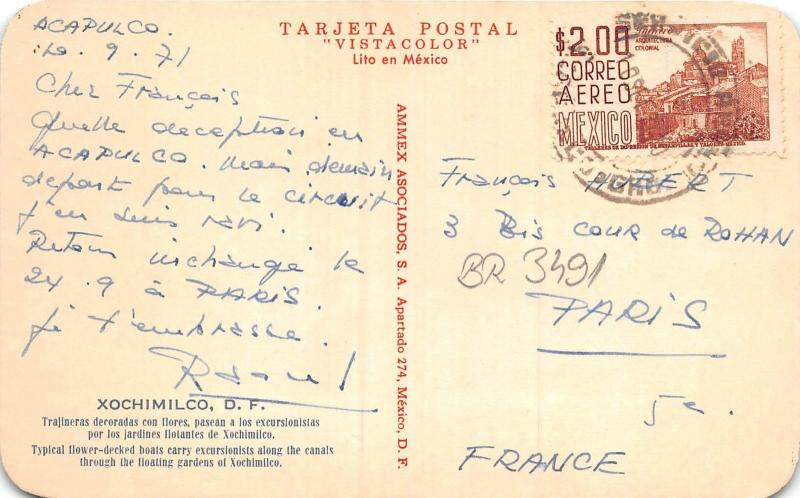 TARJETA POSTAL
"VISTACOLOR"
Lito en México
ACAPULCO.
10.9.71
Cher François
Quelle deception en
ACAPULCO. Mais demain
depart pour le circuit
j'en suis ravi.
Retour inchangé le
24.9 à PARIS.
je t'embrasse.
Raoul
XOCHIMILCO, D. F.
Trajineras decoradas con flores, pasean a los excursionistas
por los jardines flotantes de Xochimilco.
Typical flower-decked boats carry excursionists along the canals
through the floating gardens of Xochimilco.
AMMEX ASOCIADOS, S. A. Apartado 274, México, D. F.
$2.00
CORREO
AEREO
MEXICO
ARQUITECTURA
COLONIAL
TALLERES DE IMPRESION DE ESTAMPILLAS Y VALORES-MEXICO.
François HUBERT
3 Bis COUR de ROHAN
BR 3491
PARIS
5e.
FRANCE